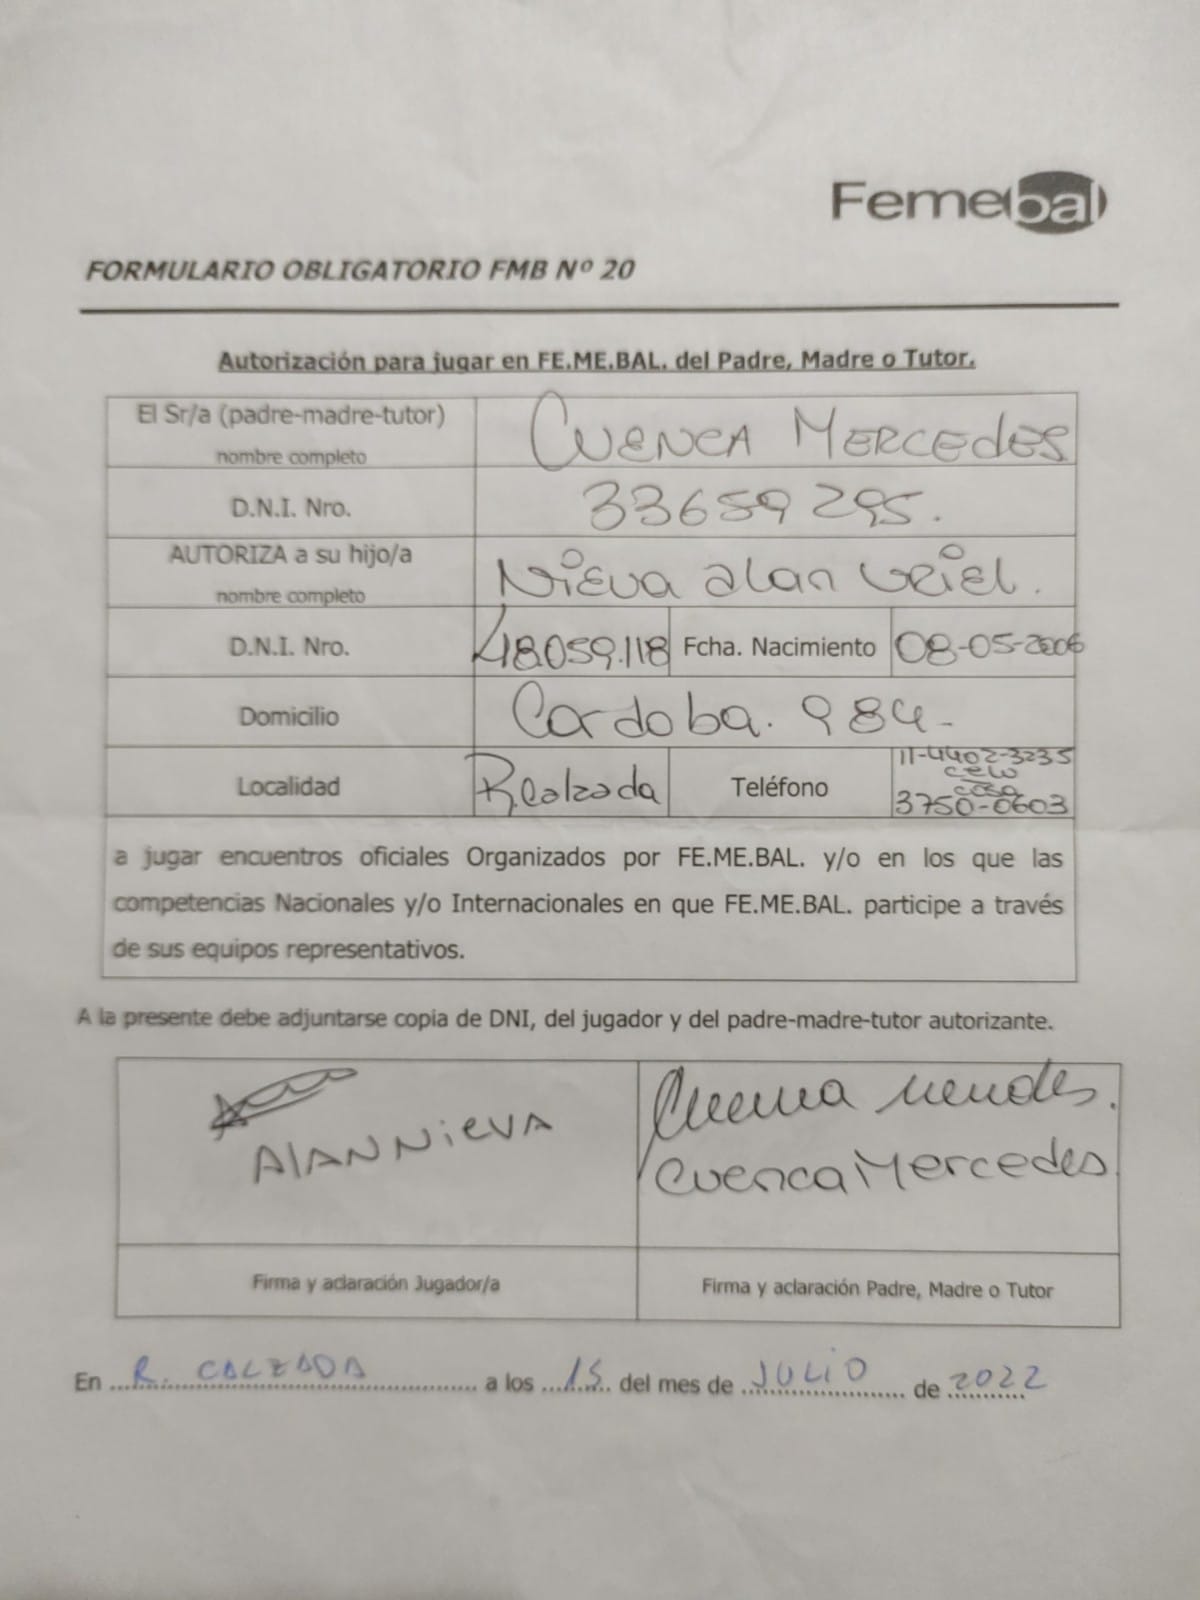 Femebal
FORMULARIO OBLIGATORIO FMB Nº 20
Autorización para jugar en FE.ME.BAL. del Padre, Madre o Tutor.
El Sr/a (padre-madre-tutor)
nombre completo
CUENCA MERCEDES
D.N.I. Nro.
33659295.
AUTORIZA a su hijo/a
nombre completo
Nieva alan Uriel.
D.N.I. Nro.
48.059.118
Fcha. Nacimiento
08-05-2006
Domicilio
Cordoba. 984-
Localidad
R.Calzada
Teléfono
11-4402-3235
celu
casa
3750-0603
a jugar encuentros oficiales Organizados por FE.ME.BAL. y/o en los que las
competencias Nacionales y/o Internacionales en que FE.ME.BAL. participe a través
de sus equipos representativos.
A la presente debe adjuntarse copia de DNI, del jugador y del padre-madre-tutor autorizante.
AlAN NiEVA
Cuenca Mercedes.
Cuenca Mercedes.
Firma y aclaración Jugador/a
Firma y aclaración Padre, Madre o Tutor
En R. CALZADA a los 15 del mes de JULIO de 2022